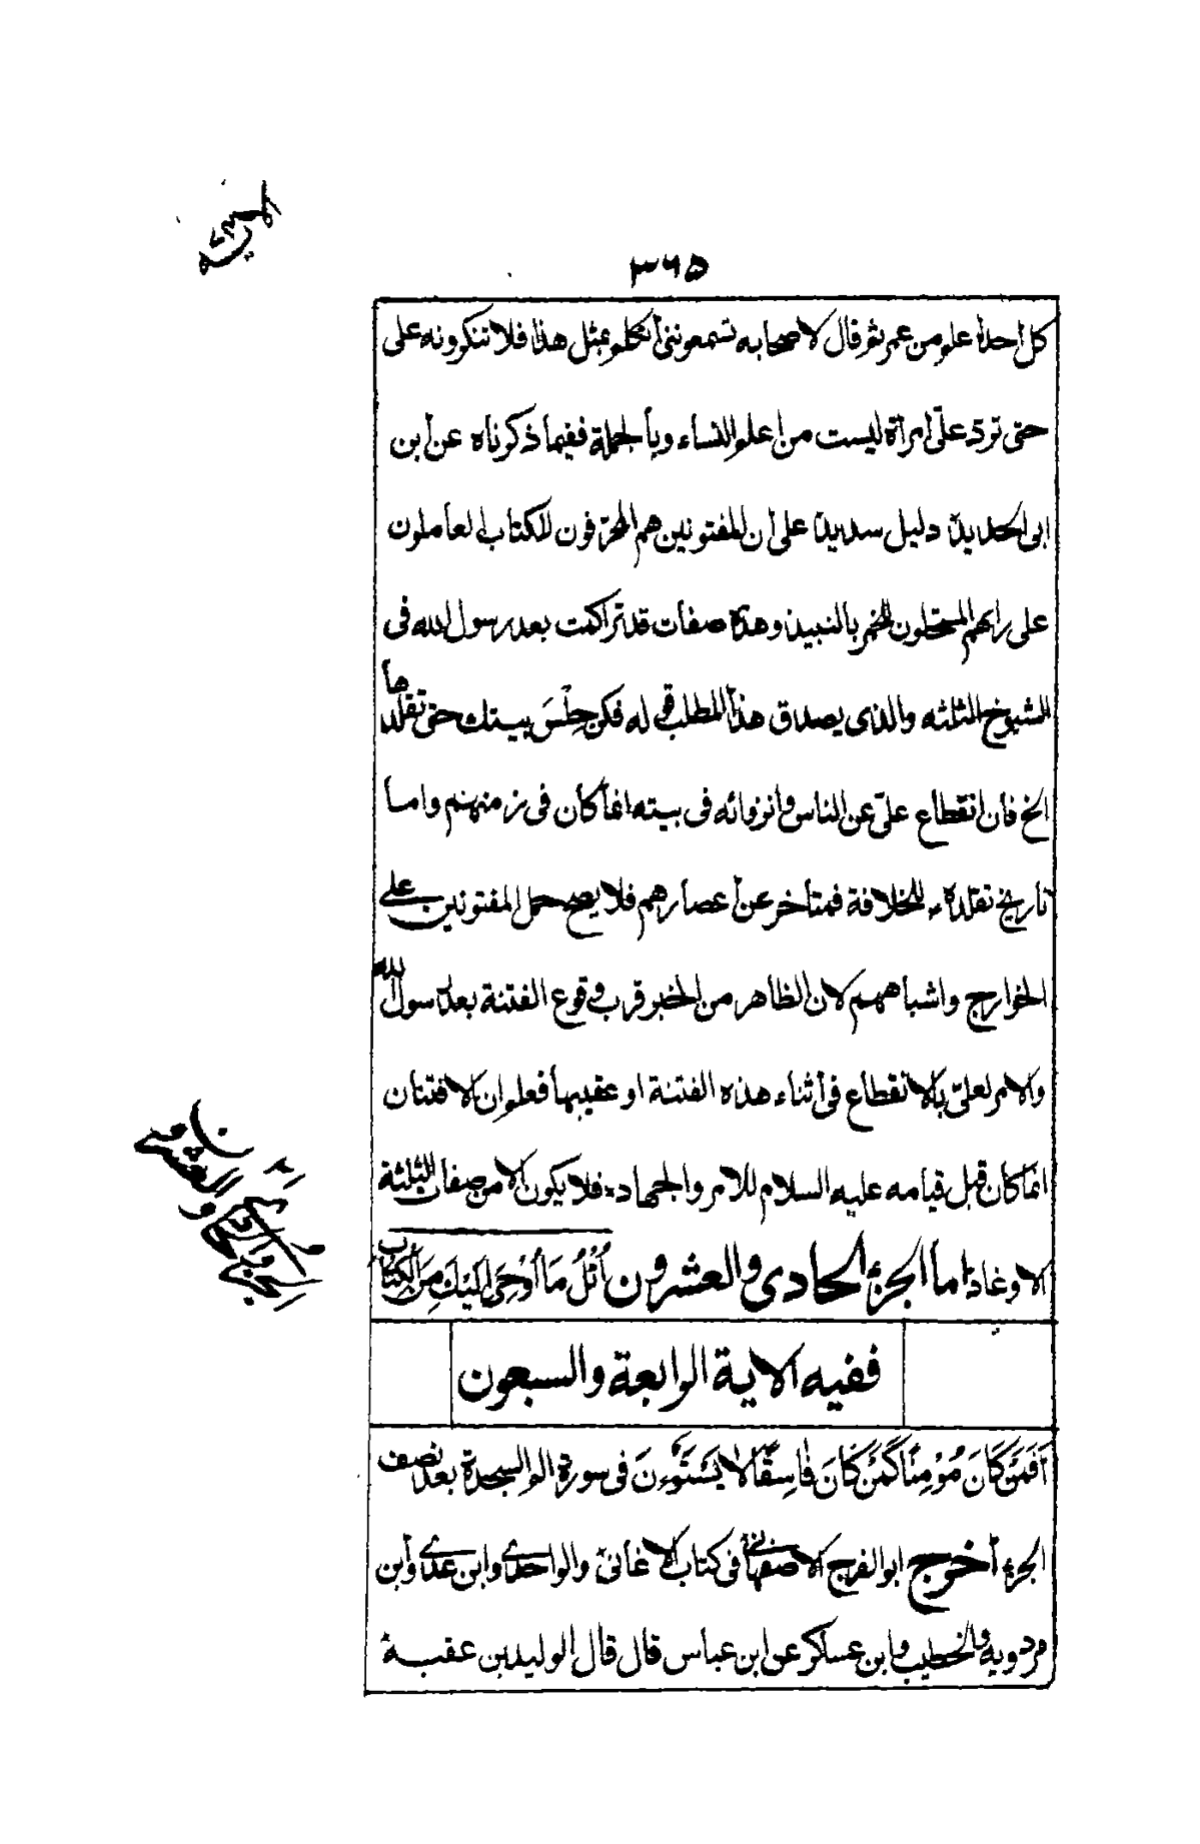 ٣٦٥
كل أحد أعلم من عمر ثم قال لاصحابه تسمعونني أتكلم بمثل هذا فلا تنكرونه على
حتى تردّ علىّ امرأة ليست من اعلم النساء وبالجملة ففيما ذكرناه عن ابن
ابى الحديد دليل سديد على ان المفتونين هم المحرّفون للكتاب العاملون
على رايهم المستحلون للخمر بالنبيذ وهذه صفات قد تراكمت بعد رسول الله فى
الشيوخ الثلثه والذى يصدق هذا المطلب قوله فكن جلْسَ بيتك حتى تقلدها
الخ فان انقطاع علىّ عن الناس وانزوائه فى بيته انما كان فى زمنهم واما
تاريخ تقلده للخلافة فمتأخر عن أعصارهم فلا يصح حمل المفتونين على
الخوارج واشباههم لان الظاهر من الخبر قرب وقوع الفتنة بعد رسول الله
والامر لعلىّ بالانقطاع فى أثناء هذه الفتنة او عقيبها فعلم ان الافتتان
انما كان قبل قيامه عليه السلام للامر والجهاد فلا يكون الا من صفات الثلثة
الاوغاد اما الجزء الحادى والعشرون أُتْلُ مَا أُوْحِىَ اِلَيْكَ مِنَ الْكِتَابِ
ففيه الاية الرابعة والسبعون
اَفَمَنْ كَانَ مُؤْمِنًا كَمَنْ كَانَ فَاسِقًا لَا يَسْتَوُونَ فى سورة الم السجدة بعد نصف
الجزء أخرج ابو الفرج الاصفهانى فى كتاب الاغانى والواحدى وابن عدى وابن
مردويه والخطيب وابن عساكر عن ابن عباس قال قال الوليد بن عقبة
الجزء الحادى والعشرون